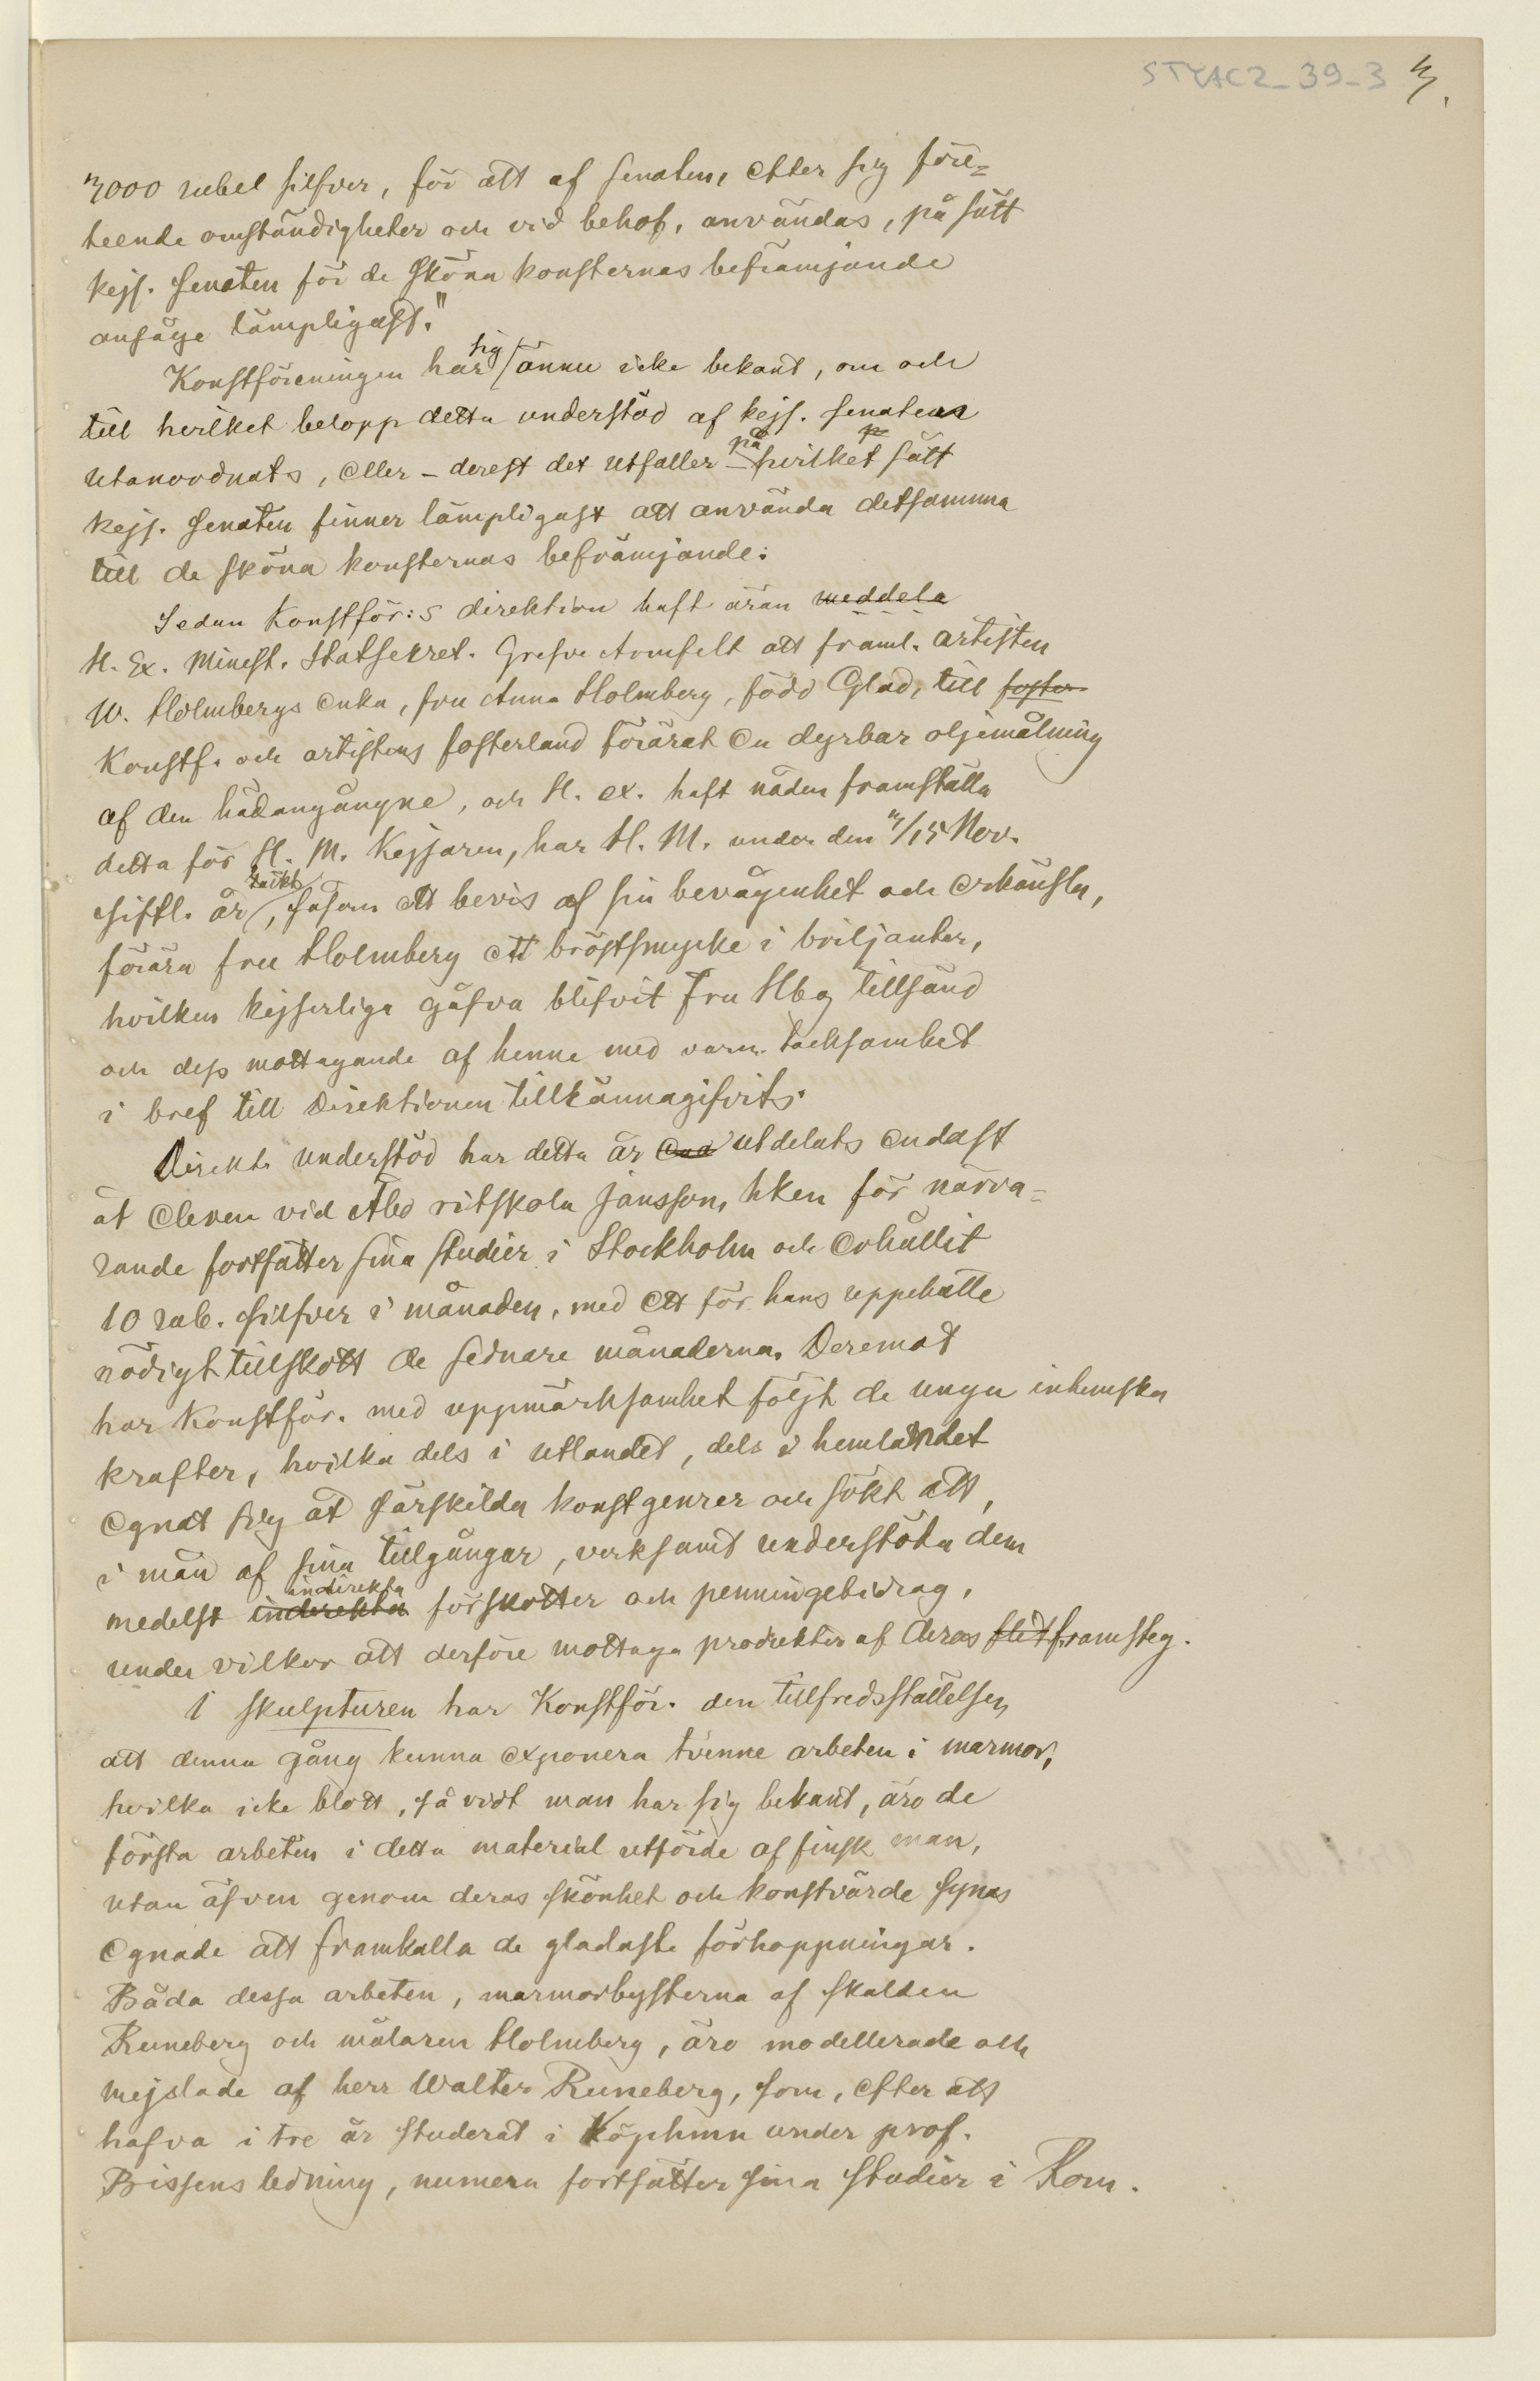 STYAC2_39-3 3.
3000 rubel silfver, för att af senaten, efter sig före=
teende omständigheter och vid behof, användas, på sätt
kejs. senaten för de sköna konsternas befrämjande
ansåge lämpligast."
Konstföreningen har sig ännu icke bekant, om och
till hvilket belopp detta understöd af kejs. senaten
utanordnats, eller – derest det utfaller – på hvilket sätt
kejs. senaten finner lämpligast att använda detsamma
till de sköna konsternas befrämjande.
Sedan Konstför:s direktion haft äran meddela
H. Ex. Minist. Statsekret. Grefve Armfelt att framl. artisten
W. Holmbergs enka, fru Anna Holmberg, född Glad, till foster
Konstf. och artistens fosterland förärat en dyrbar oljemålning
af den hädangångne, och H. ex. haft nåden framställa
detta för H. M. Kejsaren, har H. M. under den 3/15 Nov.
sistl. år täckts, såsom ett bevis af sin bevågenhet och erkänsla,
förära fru Holmberg ett bröstsmycke i briljanter,
hvilken kejserliga gåfva blifvit Fru Hbg tillsänd
och dess mottagande af henne med varm tacksamhet
i bref till Direktionen tillkännagifvits.
Direkta understöd har detta år end utdelats endast
åt eleven vid Åbo ritskola Jansson, hken för närva=
rande fortsätter sina studier i Stockholm och erhållit
10 rub. silfver i månaden, med ett för hans uppehälle
nödigt tillskott de sednare månaderna. Deremot
har Konstför. med uppmärksamhet följt de unga inhemska
krafter, hvilka dels i utlandet, dels i hemlandet
egnat sig åt särskilda konstgenrer och sökt att,
i mån af sina tillgångar, verksamt understöda dem
medelst indirekta indirekta förskotter och penningebidrag,
under vilkor att derföre mottaga produkter af deras flit framsteg.
I skulpturen har Konstför. den tillfredsställelsen
att denna gång kunna exponera tvenne arbeten i marmor,
hvilka icke blott, så vidt man har sig bekant, äro de
första arbeten i detta material utförde af finsk man,
utan äfven genom deras skönhet och konstvärde synas
egnade att framkalla de gladaste förhoppningar.
Båda dessa arbeten, marmorbysterna af skalden
Runeberg och målaren Holmberg, äro modellerade och
mejslade af herr Walter Runeberg, som, efter att
hafva i tre år studerat i Köphmn under prof.
Bissens ledning, numera fortsätter sina studier i Rom.